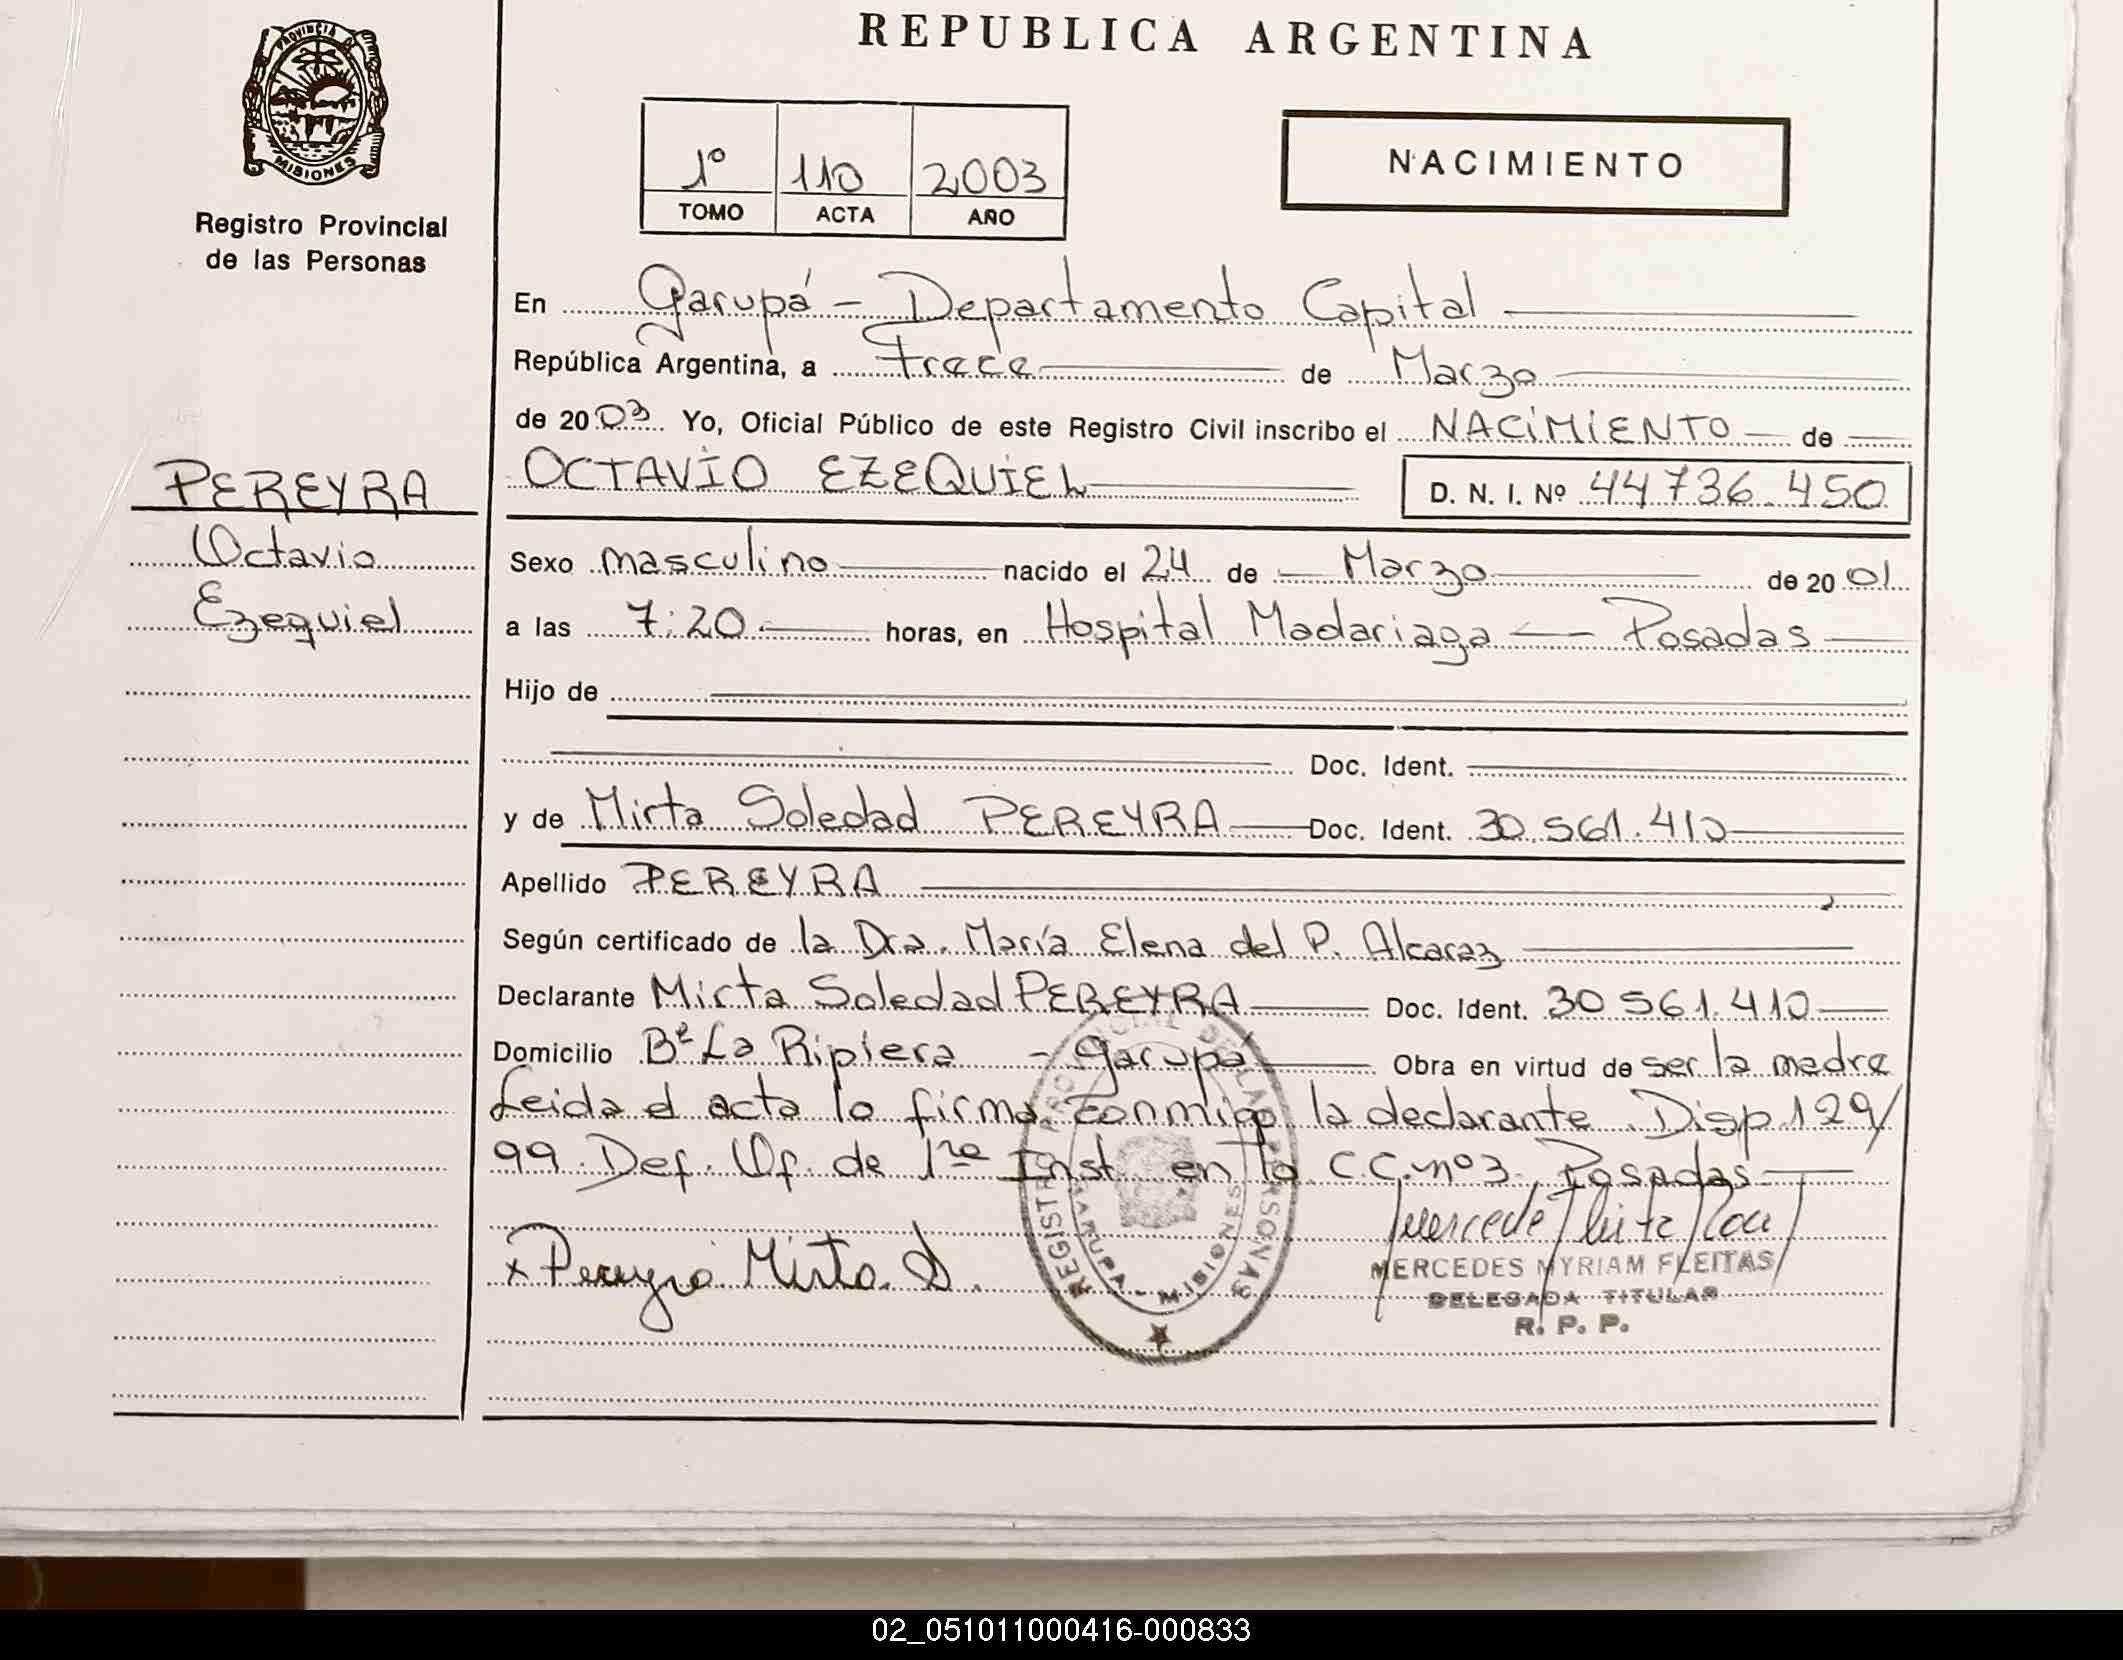 REPUBLICA ARGENTINA
PROVINCIA DE
MISIONES
Registro Provincial
de las Personas
1º 110 2003
TOMO ACTA AÑO
NACIMIENTO
En Garupá - Departamento Capital
República Argentina, a trece de Marzo
de 2003 Yo, Oficial Público de este Registro Civil inscribo el NACIMIENTO de
PEREYRA
Octavio
Ezequiel
OCTAVIO EZEQUIEL D. N. I. Nº 44736.450
Sexo masculino nacido el 24 de Marzo de 2001
a las 7:20 horas, en Hospital Madariaga - Posadas
Hijo de
Doc. Ident.
y de Mirta Soledad PEREYRA Doc. Ident. 30.561.410
Apellido PEREYRA
Según certificado de la Dra. María Elena del P. Alcaraz
Declarante Mirta Soledad PEREYRA Doc. Ident. 30 561.410
Domicilio Bº La Ripiera - Garupá Obra en virtud de ser la madre
Leida el acta la firma conmigo la declarante. Disp 129/
99. Def. Of. de 1ra Inst. en lo C.C. nº3. Posadas
x Pereyra Mirta S.
REGISTRO PROVINCIAL DE LAS PERSONAS
GARUPA - MISIONES
MERCEDES MYRIAM FLEITAS
DELEGADA TITULAR
R. P. P.
02_051011000416-000833